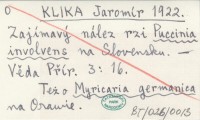 o KLIKA Jaromír 1922.
Zajímavý nález rzi Puccinia
involvens na Slovensku. —
Věda Přír. 3: 16.
Též o Myricaria germanica
na Oravie.